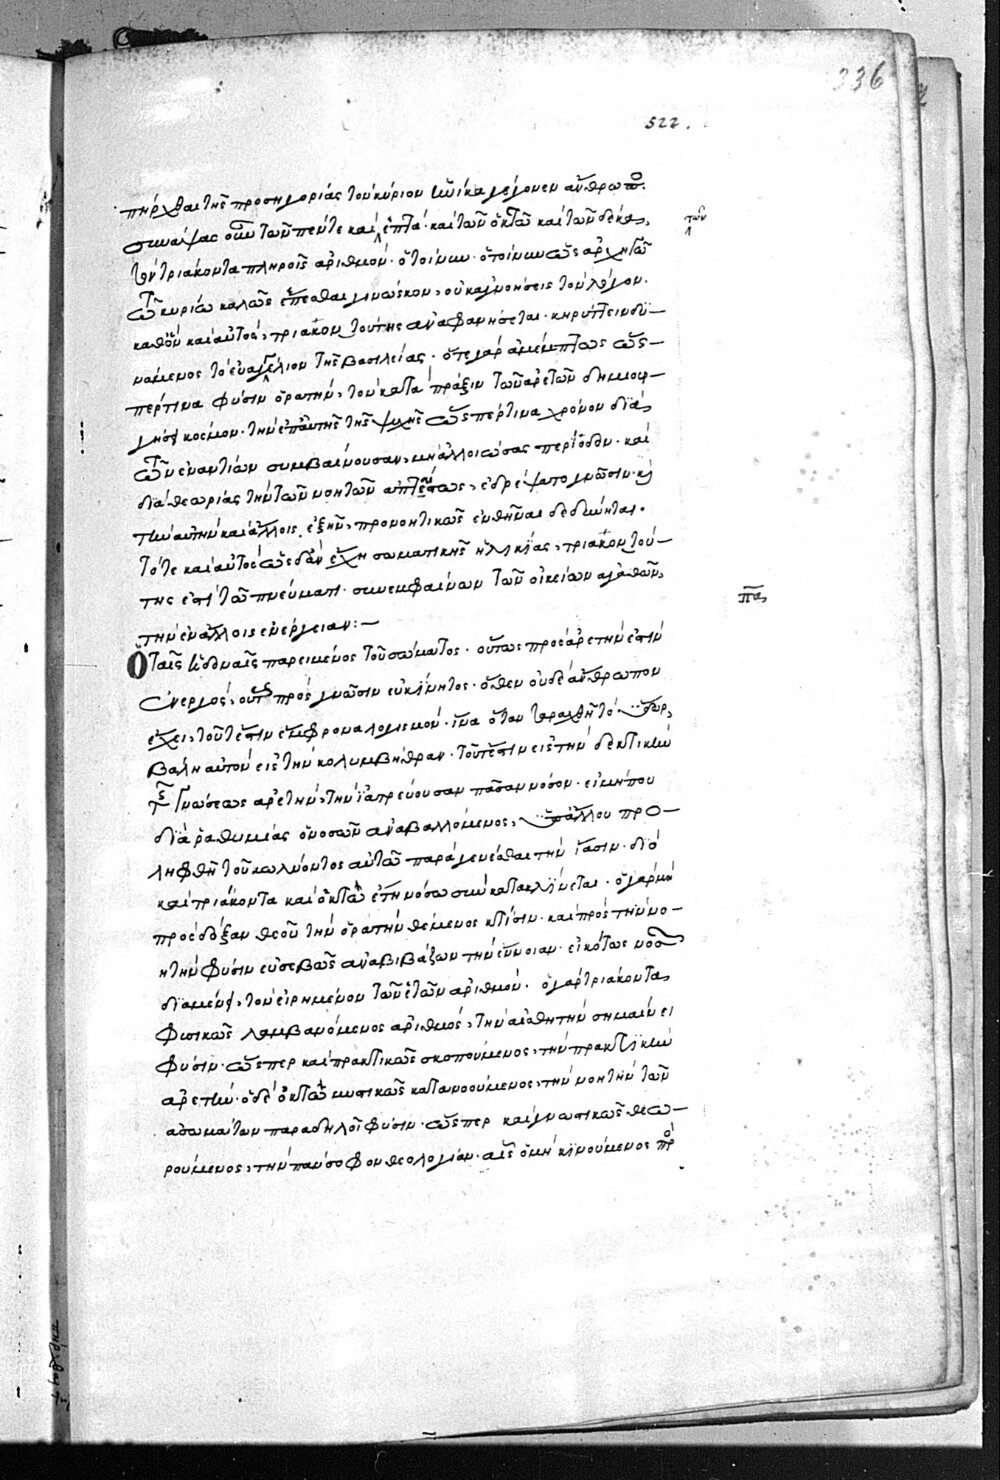 336
522.
πῆρχθαι τῆς προσηγορίας τὸν κύριον ἡνίκα γέγονεν ἄνθρωπος.
συνάψας οὖν τῶν πέντε καὶ ἑπτὰ· καὶ τῶν ὀκτὼ καὶ τῶν δέκα,
τῶν
τὸν τριάκοντα πληροῖς ἀριθμόν· ὁ τοίνυν ὡς ἀρχηγῷ
τῷ κυρίῳ καλῶς ἕπεσθαι γινώσκων, οὐκ ἀγνοήσεις τὸν λόγον.
καθ' ὃν καὶ αὐτὸς, τριακοντούτης ἀναφανήσεται· κηρύττειν δυ-
νάμενος τὸ εὐαγγέλιον τῆς βασιλείας· ὅτε γὰρ ἀμέμπτως ὥσ-
περ τινα φύσιν ὁρατὴν, τὸν κατὰ πρᾶξιν τῶν ἀρετῶν δημιουρ-
γήσῃ κόσμον· τὴν ἐπ' αὐτῆς τῆς ψυχῆς ὥσπερ τινα χρόνον διὰ
τῶν ἐναντίων συμβαίνουσαν, μὴ ἀλλοιώσας περίοδον· καὶ
διὰ θεωρίας τὴν τῶν νοητῶν ἀπταίστως, ἐδρέψατο γνῶσιν· καὶ
τὴν αὐτὴν καὶ ἄλλοις ἑξῆς, προνοητικῶς ἐνθῆναι δεδύνηται.
τότε καὶ αὐτὸς ὡς δ' ἂν ἔχῃ σωματικῆς ἡλικίας, τριακοντού-
της ἐστὶ τῷ πνεύματι· συνεμφαίνων τῶν οἰκείων ἀγαθῶν,
τὴν ἐν ἄλλοις ἐνέργειαν:-
Ὁ ταῖς ἡδοναῖς παρειμένος τοῦ σώματος· οὔτως πρὸς ἀρετὴν ἐστὶν
ἐνεργὸς, οὔτε πρὸς γνῶσιν εὐκίνητος· ὅθεν οὐδὲ ἄνθρωπον
ἔχει, τοῦτέστιν ἔμφρονα λογισμόν· ἵνα ὅταν ταραχθῇ τὸ ὕδωρ,
βάλῃ αὐτὸν εἰς τὴν κολυμβήθραν· τοῦτέστιν εἰς τὴν δεκτικὴν
τῆς γνώσεως ἀρετὴν, τὴν ἰατρεύουσαν πᾶσαν νόσον· εἰ μήπου
διὰ ῥαθυμίας ὁ νοσῶν ἀναβαλλόμενος, ὑπ' ἄλλου προ-
ληφθῇ τοῦ κωλύοντος αὐτῷ παραγενέσθαι τὴν ἴασιν· διὸ
καὶ τριάκοντα καὶ ὀκτὼ ἔτη νόσῳ συγκατακλίνεται· ὁ γὰρ μὴ
πρὸς δόξαν θεοῦ τὴν ὁρατὴν θέμενος κτίσιν· καὶ πρὸς τὴν νο-
ητὴν φύσιν εὐσεβῶς ἀναβιβάζων τὴν ἔννοιαν· εἰκότως νοσῶν
διαμένει, τὸν εἰρημένον τῶν ἐτῶν ἀριθμόν· ὁ γὰρ τριάκοντα
φυσικῶς λαμβανόμενος ἀριθμὸς, τὴν αἰσθητὴν σημαίνει
φύσιν· ὥσπερ καὶ πρακτικῶς σκοπούμενος, τὴν πρακτικὴν
ἀρετὴν· ὁ δὲ ὀκτὼ φυσικῶς κατανοούμενος, τὴν νοητὴν τῶν
ἀσωμάτων παραδηλοῖ φύσιν· ὥσπερ καὶ γνωστικῶς θεω-
ρούμενος, τὴν πάνσοφον θεολογίαν· αἷς ὁ μὴ κινούμενος πρὸ